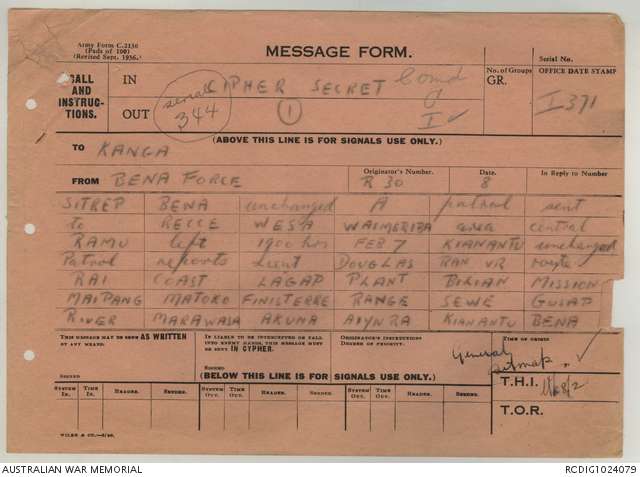 Army Form C.2136
(Pads of 100)
(Revised Sept. 1936.)
MESSAGE FORM.
Serial No.
CALL
AND
INSTRUC-
TIONS.
IN
OUT
serial
344
CIPHER SECRET
1
Comd
G
I ✓
No. of Groups
GR.
OFFICE DATE STAMP
I 371
(ABOVE THIS LINE IS FOR SIGNALS USE ONLY.)
TO KANGA
FROM BENA FORCE
Originator's Number.
R 30
Date.
8
In Reply to Number.
SITREP BENA unchanged A patrol sent
to RECCE WESA WAIMERIBA area central
RAMU left 1900 hrs FEB 7 KIANANTU unchanged
Patrol reports Lieut DOUGLAS RAN VR route
RAI COAST LAGAP PLANT BILIAN MISSION
MAIPANG MATOKO FINISTERRE RANGE SEWE GUSAP
RIVER MARAWASA AKUNA AIYNRA KIANANTU BENA
THIS MESSAGE MAY BE SENT AS WRITTEN
BY ANY MEANS.
SIGNED
IF LIABLE TO BE INTERCEPTED OR FALL
INTO ENEMY HANDS, THIS MESSAGE MUST
BE SENT IN CYPHER.
SIGNED
ORIGINATOR'S INSTRUCTIONS
DEGREE OF PRIORITY.
General
Sitmap ✓
TIME OF ORIGIN.
T.H.I.
T.O.R.
(BELOW THIS LINE IS FOR SIGNALS USE ONLY.)
SYSTEM IN. TIME IN. READER. SENDER. SYSTEM OUT. TIME OUT. READER. SENDER. SYSTEM OUT. TIME OUT. READER. SENDER.
AUSTRALIAN WAR MEMORIAL
RCDIG1024079